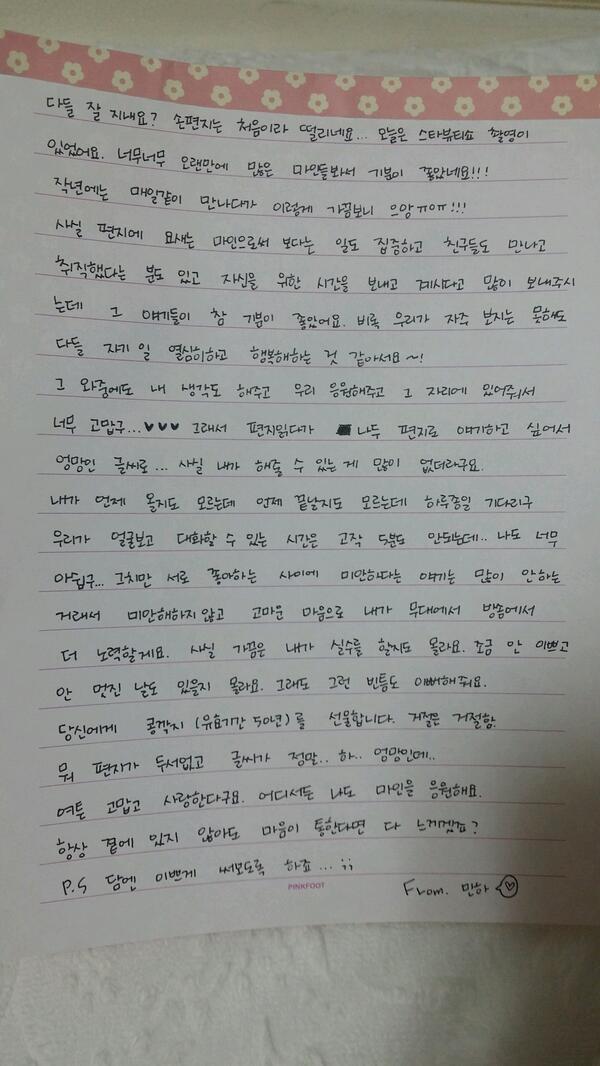 다들 잘 지내요? 손편지는 처음이라 떨리네요... 오늘은 스타뷰티쇼 촬영이
있었어요. 너무너무 오랜만에 많은 마인들봐서 기분이 좋았네요!!!
작년에는 매일같이 만나다가 이렇게 가끔보니 으앙ㅠㅇㅠ!!!
사실 편지에 요새는 마인으로써 보다는 일도 집중하고 친구들도 만나고
취직했다는 분도 있고 자신을 위한 시간을 보내고 계시다고 많이 보내주시
는데 그 얘기들이 참 기분이 좋았어요. 비록 우리가 자주 보지는 못해도
다들 자기 일 열심히하고 행복해하는 것 같아서요~!
그 와중에도 내 생각도 해주고 우리 응원해주고 그 자리에 있어줘서
너무 고맙구...♥♥♥ 그래서 편지읽다가 나두 편지로 얘기하고 싶어서
엉망인 글씨로... 사실 내가 해줄 수 있는 게 많이 없더라구요.
내가 언제 올지도 모르는데 언제 끝날지도 모르는데 하루종일 기다리구
우리가 얼굴보고 대화할 수 있는 시간은 고작 5분도 안되는데.. 나도 너무
아쉽구... 그치만 서로 좋아하는 사이에 미안하다는 얘기는 많이 안하는
거래서 미안해하지않고 고마운 마음으로 내가 무대에서 방송에서
더 노력할게요. 사실 가끔은 내가 실수를 할지도 몰라요. 조금 안 이쁘고
안 멋진 날도 있을지 몰라요. 그래도 그런 빈틈도 이뻐해줘요.
당신에게 콩깍지 (유효기간 50년)를 선물합니다. 거절은 거절함.
뭐 편지가 두서없고 글씨가 정말.. 하.. 엉망인데..
여튼 고맙고 사랑한다구요. 어디서든 나도 마인을 응원해요.
항상 곁에 있지 않아도 마음이 통한다면 다 느끼겠죠?
P.S 담엔 이쁘게 써보도록 하죠...;;
PINKFOOT
From. 민하 ♡